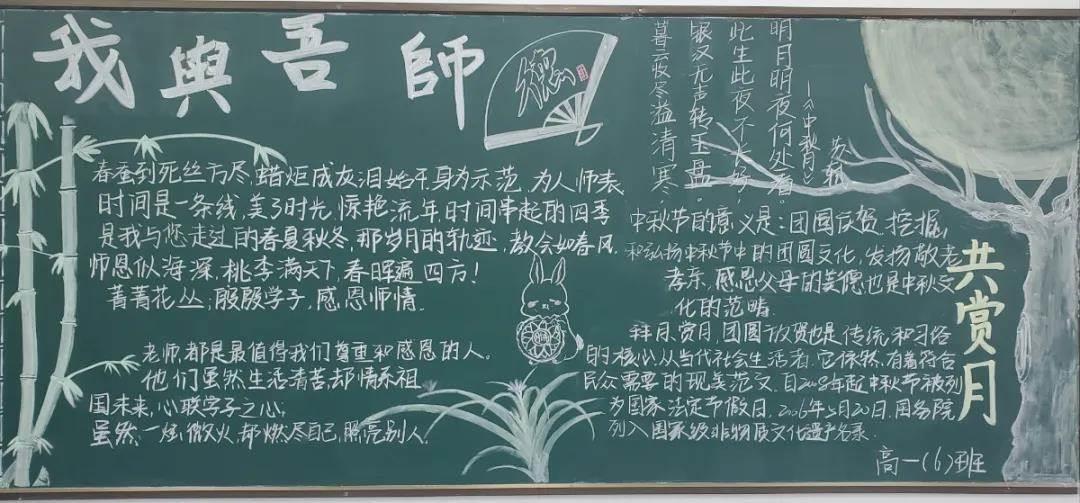 我與吾師
德
春蚕到死丝方尽,蜡炬成灰泪始干,身为示范,为人师表,
时间是一条线,美了时光,惊艳流年,时间串起的四季
是我与您走过的春夏秋冬,那岁月的轨迹,教会如春风,
师恩似海深,桃李满天下,春晖遍四方!
菁菁花丛,殷殷学子,感恩师情.
老师,都是最值得我们尊重和感恩的人。
他们虽然生活清苦,却情系祖
国未来,心联学子之心;
虽然一烛微火,却燃尽自己,照亮别人.
暮云收尽溢清寒,
银汉无声转玉盘
此生此夜不长好,
明月明夜何处看
——《中秋月》
苏轼
中秋节的意义是:团圆庆贺,挖掘,
和弘扬中秋节中的团圆文化,发扬敬老
孝亲,感恩父母的美德,也是中秋文
化的范畴.
拜月,赏月,团圆庆贺也是传统和习俗
的核心从当代社会生活看,它依然有着符合
民众需要的现美范文,自2008年起中秋节被列
为国家法定节假日.2006年5月20日,国务院
列入国家级非物质文化遗产名录.
共赏月
高一(6)班